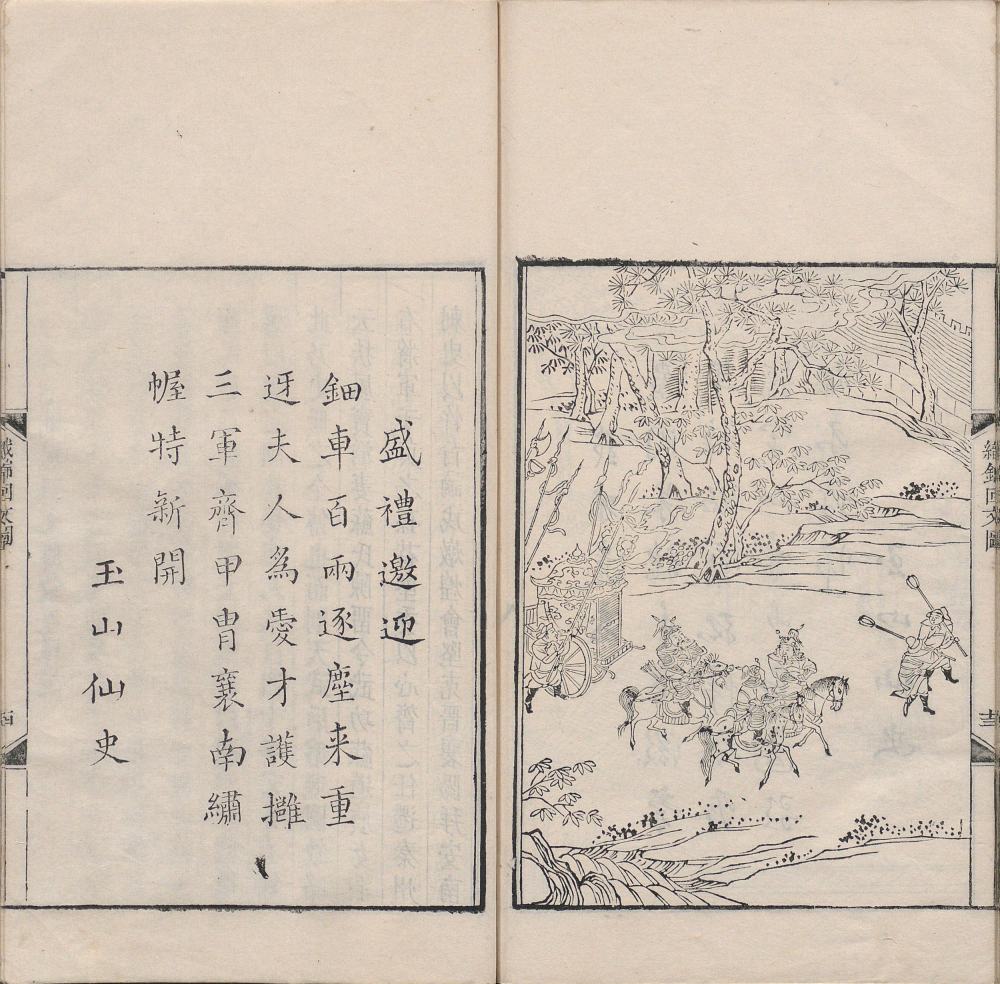 織錦回文圖
盛禮邀迎
鈿車百兩逐塵来重
迓夫人為愛才護擁
三軍齊甲冑襄南繡
幄特新開
玉山仙史
織錦回文圖